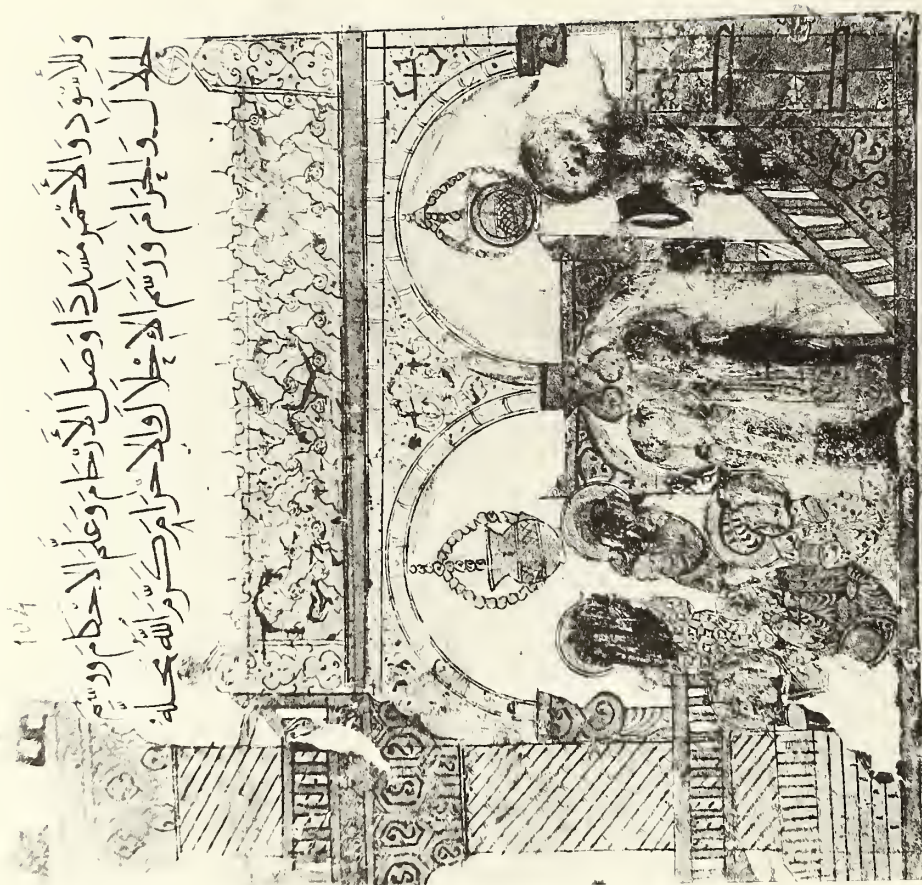 104
وَلِلأَسْوَدِ وَالأَحْمَرِ مُسَدِّدًا وَصَلَ الأَرْحَامَ وَعَلَّمَ الأَحْكَامَ وَوَسَمَ
الحَلَالَ وَالحَرَامَ وَرَسَمَ الإِحْلَالَ وَالإِحْرَامَ كَرَّمَ اللهُ محله